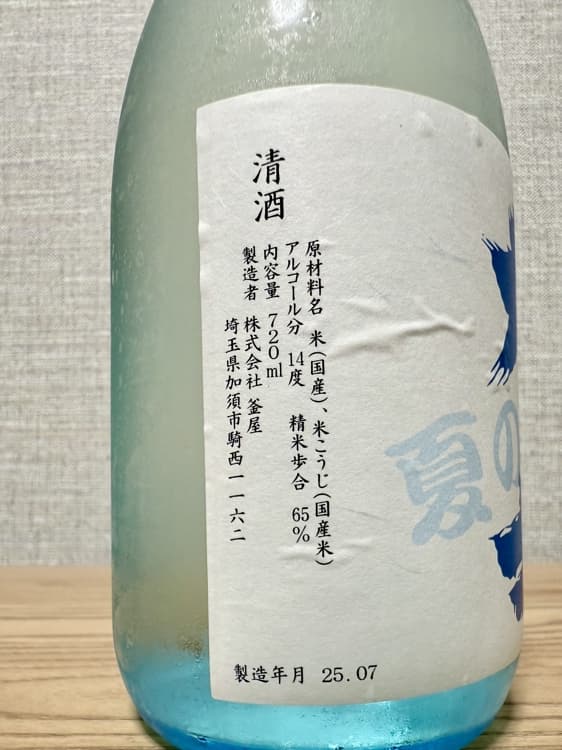 清酒
原材料名 米(国産)、米こうじ(国産米)
アルコール分 14度 精米歩合 65%
内容量 720ml
製造者 株式会社 釜屋
埼玉県加須市騎西一一六二
夏の
製造年月 25.07